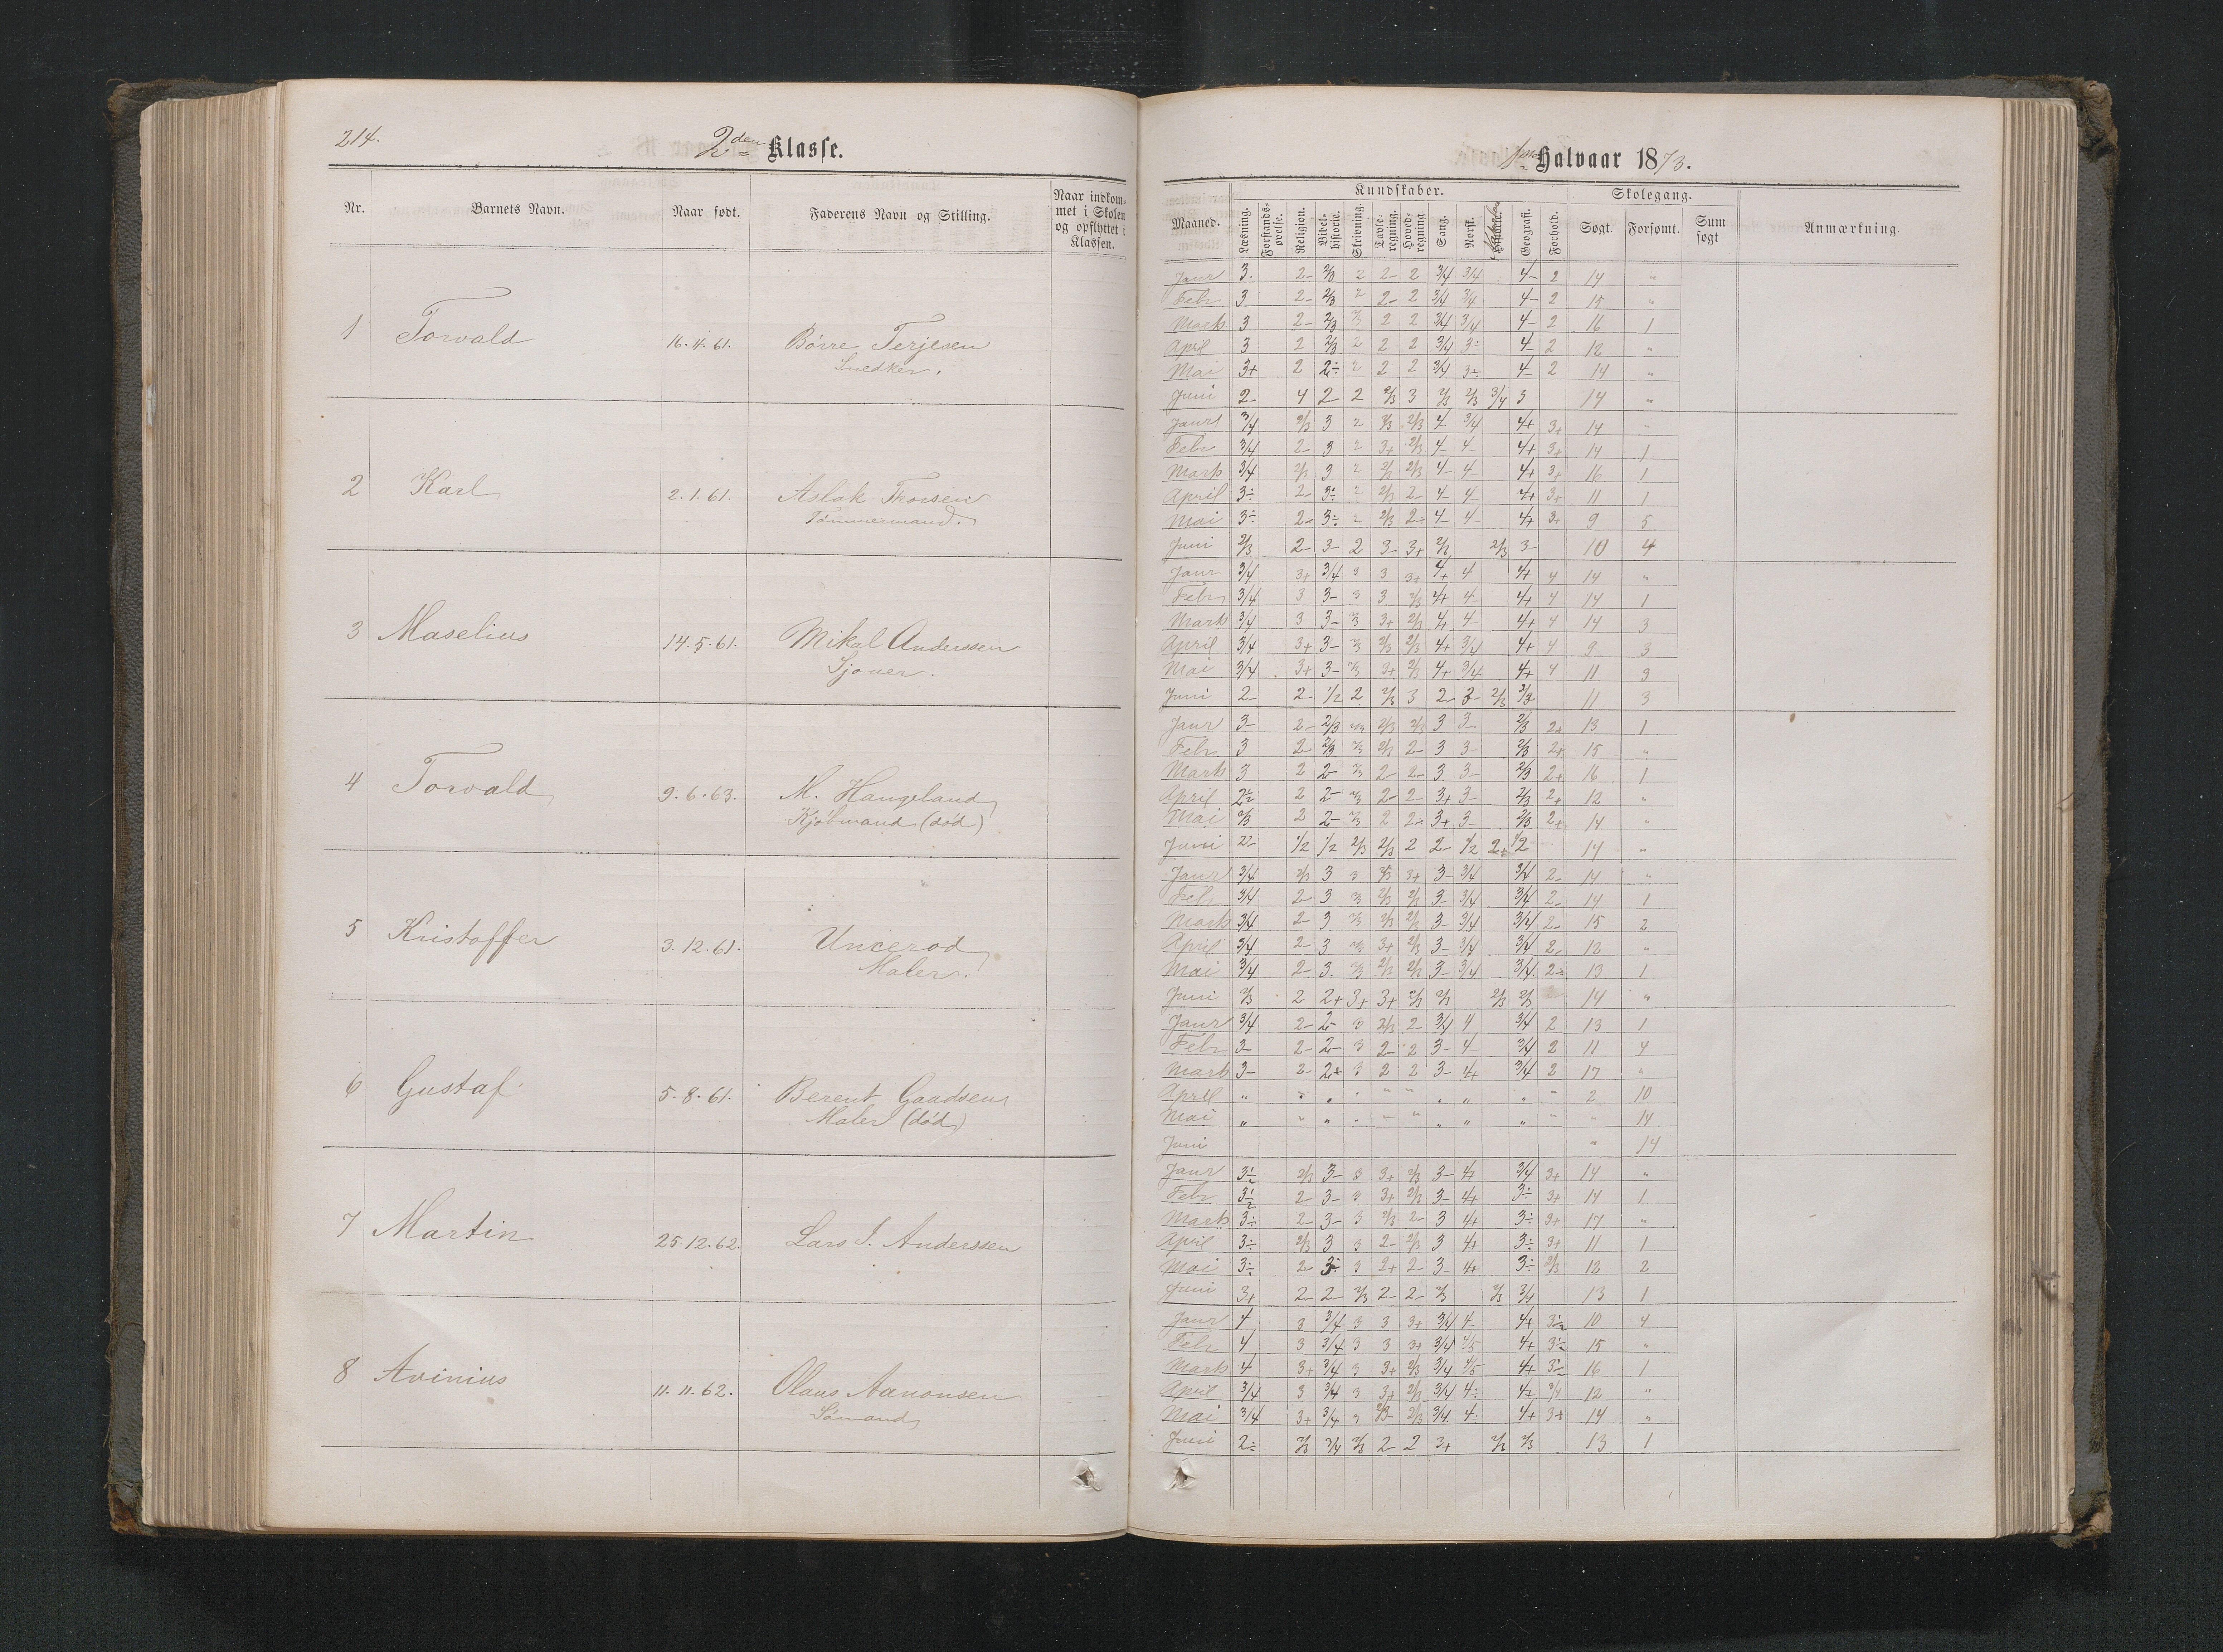 214.
2den Klasse.
Nr. Barnets Navn. Naar født. Faderens Navn og Stilling. Naar indkommet i Skolen og opflyttet i Klassen.
1 Torvald 16.4.61. Børre Terjesen
Snedker.
2 Karl 2.1.61. Aslak Thorsen
Tømmermand.
3 Maselius 14.5.61. Mikal Anderssen
Sjouer.
4 Torvald 9.6.63. M. Haugeland
Kjøbmand (død)
5 Kristoffer 3.12.61. Uncerod
Maler.
6 Gustaf 5.8.61. Berent Gaadsen
Maler (død)
7 Martin 25.12.62. Lars J. Anderssen
8 Avinius 11.11.62. Olaus Aanonsen
Sømand
Halvaar 1873.
Kundskaber. Skolegang.
Maaned. Læsning. Forstands-øvelse. Religion. Bibel-historie. Skrivning. Tavle-regning. Hoved-regning. Sang. Norsk. Geografi. Forhold. Søgt. Forsømt. Sum søgt Anmærkning.
Janr 3. 2- 2/3 2 2- 2 3/4 3/4 4- 2 14 "
Febr 3 2- 2/3 2 2- 2 3/4 3/4 4- 2 15 "
Marts 3 2- 2/3 2/3 2 2 3/4 3/4 4- 2 16 1
April 3 2 2/3 2 2 2 3/4 3÷ 4- 2 12 "
Mai 3+ 2 2÷ 2 2 2 3/4 3÷ 4- 2 14 "
Juni 2- 4 2- 2 2/3 3 2/3 2/3 3/4 3 14 "
Janr 3/4 2/3 3 2 2/3 2/3 4- 3/4 4+ 3+ 14 "
Febr 3/4 2- 3 2 3+ 2/3 4- 4- 4+ 3+ 14 1
Marts 3/4 2/3 3 2 2/3 2/3 4- 4- 4+ 3+ 16 1
April 3÷ 2- 3÷ 2 2/3 2- 4- 4- 4+ 3+ 11 1
Mai 3÷ 2- 3÷ 2 2/3 2- 4- 4- 4+ 3+ 9 5
Juni 2/3 2- 3- 2 3- 3+ 2/3 2/3 3- 10 4
Janr 3/4 3+ 3/4 3 3 3+ 4+ 4 4+ 4 14 "
Febr 3/4 3 3- 3 3 2/3 4+ 4- 4+ 4 14 1
Marts 3/4 3 3- 2/3 3+ 2/3 4+ 4- 4+ 4 14 3
April 3/4 3+ 3- 2/3 2/3 2/3 4+ 3/4 4+ 4 9 3
Mai 3/4 3+ 3- 2/3 3+ 2/3 4+ 3/4 4+ 4 11 3
Juni 2- 2- 1/2 2 2/3 3 2- 3- 2/3 2/3 11 3
Janr 3- 2- 2/3 2/3 2/3 2/3 3 3- 2/3 2+ 13 1
Febr 3 2- 2/3 2/3 2/3 2- 3 3- 2/3 2+ 15 "
Marts 3 2 2- 2/3 2- 2- 3 3- 2/3 2+ 16 1
April 2 2- 2/3 2- 2- 3+ 3- 2/3 2+ 12 "
Mai 2/3 2 2- 2/3 2 2- 3+ 3- 2/3 2+ 14 "
Juni 2- 1/2 1/2 2/3 2/3 2 2- 1/2 2+ 1/2 14 "
Janr 3/4 2/3 3 3 2/3 3+ 3- 3/4 3/4 2- 14 "
Febr 3/4 2- 3 2/3 2/3 2/3 3- 3/4 3/4 2- 14 1
Marts 3/4 2- 3 2/3 2/3 2/3 3- 3/4 3/4 2- 15 2
April 3/4 2- 3 2/3 3+ 2/3 3- 3/4 3/4 2- 12 "
Mai 3/4 2- 3. 2/3 2/3 2/3 3- 3/4 3/4 2- 13 1
Juni 2/3 2 2+ 3+ 3+ 2/3 2/3 2/3 2/3 14 "
Janr 3/4 2- 2- 3 2/3 2- 3/4 4 3/4 2 13 1
Febr 3- 2- 2- 3 2- 2 3- 4- 3/4 2 11 4
Marts 3- 2- 2+ 3 2 2 3- 4+ 3/4 2 17 "
April " " " " " " " " " " 2 10
Mai " " " " " " " " " " " 14
Juni " 14
Janr 3½ 2/3 3- 3 3+ 2/3 3- 4+ 3/4 3+ 14 "
Febr 3½ 2- 3- 3 3+ 2/3 3- 4+ 3÷ 3+ 14 1
Marts 3÷ 2- 3- 3 2/3 2- 3 4+ 3÷ 3+ 17 "
April 3÷ 2/3 3 3 2- 2/3 3 4+ 3÷ 3+ 11 1
Mai 3÷ 2- 3÷ 3 2+ 2- 3- 4+ 3÷ 2/3 12 2
Juni 3+ 2- 2- 2/3 2- 2- 2/3 2/3 3/4 13 1
Janr 4 3 3/4 3 3 3+ 3/4 4- 4+ 3½ 10 4
Febr 4 3 3/4 3 3 3+ 3/4 4/5 4+ 3½ 15 "
Marts 4 3+ 3/4 3 3+ 2/3 3/4 4/5 4+ 3½ 16 1
April 3/4 3 3/4 3 3+ 2/3 3/4 4÷ 4+ 3/4 12 "
Mai 3/4 3+ 3/4 3 2/3- 2/3 3/4 4÷ 4+ 3+ 14 "
Juni 2÷ 2/3 3/4 2/3 2- 2 3+ 2/3 2/3 13 1